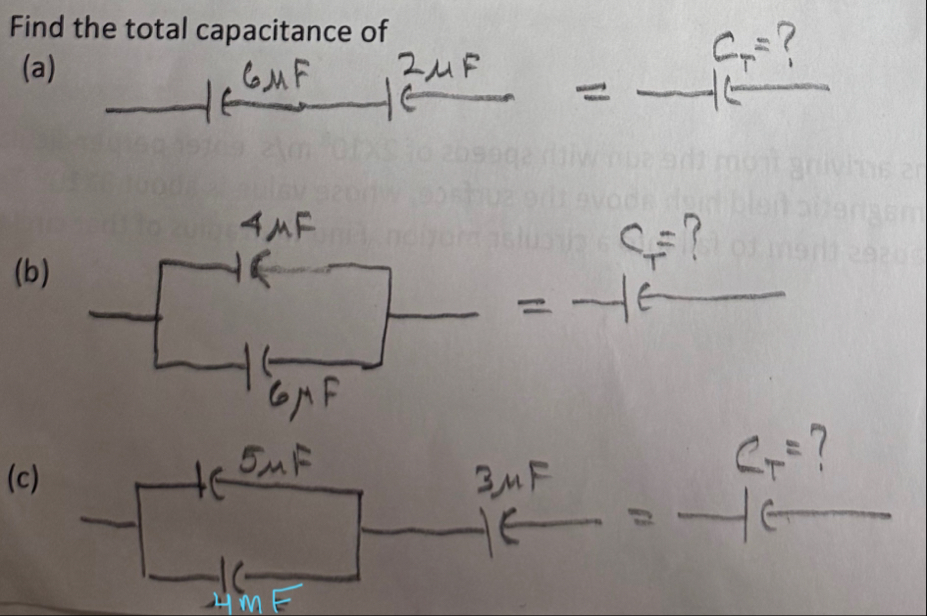 Find the total capacitance of
(a) 6μF 2μF = C_T=?
(b) 4μF = C_T=?
6μF
(c) 5μF 3μF = C_T=?
4mF